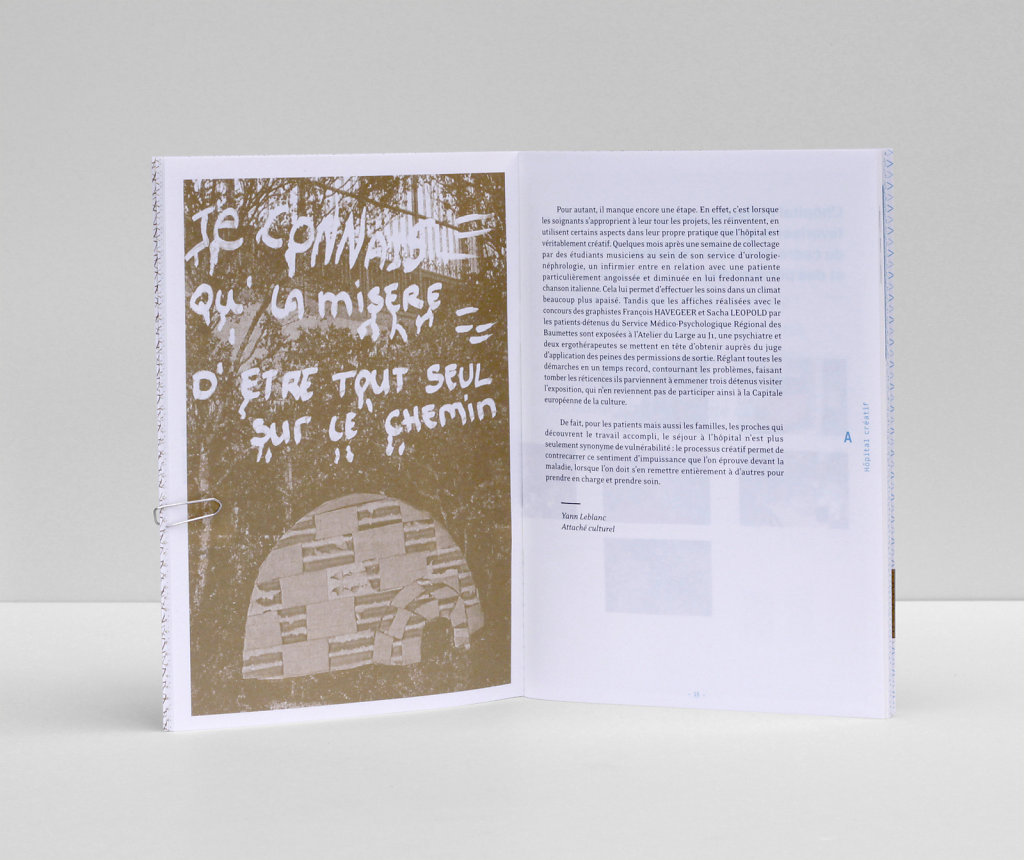 JE CONNAIS
QU' LA MISERE
D' ETRE TOUT SEUL
SUR LE CHEMIN
Pour autant, il manque encore une étape. En effet, c'est lorsque
les soignants s'approprient à leur tour les projets, les réinventent, en
utilisent certains aspects dans leur propre pratique que l'hôpital est
véritablement créatif. Quelques mois après une semaine de collectage
par des étudiants musiciens au sein de son service d'urologie-
néphrologie, un infirmier entre en relation avec une patiente
particulièrement angoissée et diminuée en lui fredonnant une
chanson italienne. Cela lui permet d'effectuer les soins dans un climat
beaucoup plus apaisé. Tandis que les affiches réalisées avec le
concours des graphistes François HAVEGEER et Sacha LEOPOLD par
les patients-détenus du Service Médico-Psychologique Régional des
Baumettes sont exposées à l'Atelier du Large au J1, une psychiatre et
deux ergothérapeutes se mettent en tête d'obtenir auprès du juge
d'application des peines des permissions de sortie. Réglant toutes les
démarches en un temps record, contournant les problèmes, faisant
tomber les réticences ils parviennent à emmener trois détenus visiter
l'exposition, qui n'en reviennent pas de participer ainsi à la Capitale
européenne de la culture.
De fait, pour les patients mais aussi les familles, les proches qui
découvrent le travail accompli, le séjour à l'hôpital n'est plus
seulement synonyme de vulnérabilité : le processus créatif permet de
contrecarrer ce sentiment d'impuissance que l'on éprouve devant la
maladie, lorsque l'on doit s'en remettre entièrement à d'autres pour
prendre en charge et prendre soin.
Yann Leblanc
Attaché culturel
A
Hôpital créatif